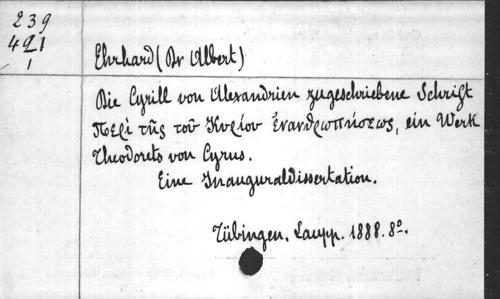 239
421
1
Ehrhard (Dr Albert)
Die Cyrill von Alexandrien zugeschriebene Schrift
Περὶ τῆς τοῦ Κυρίου ἐνανθρωπήσεως, ein Werk
Theodorets von Cyrus.
Eine Inauguraldissertation.
Tübingen. Laupp. 1888. 8º.